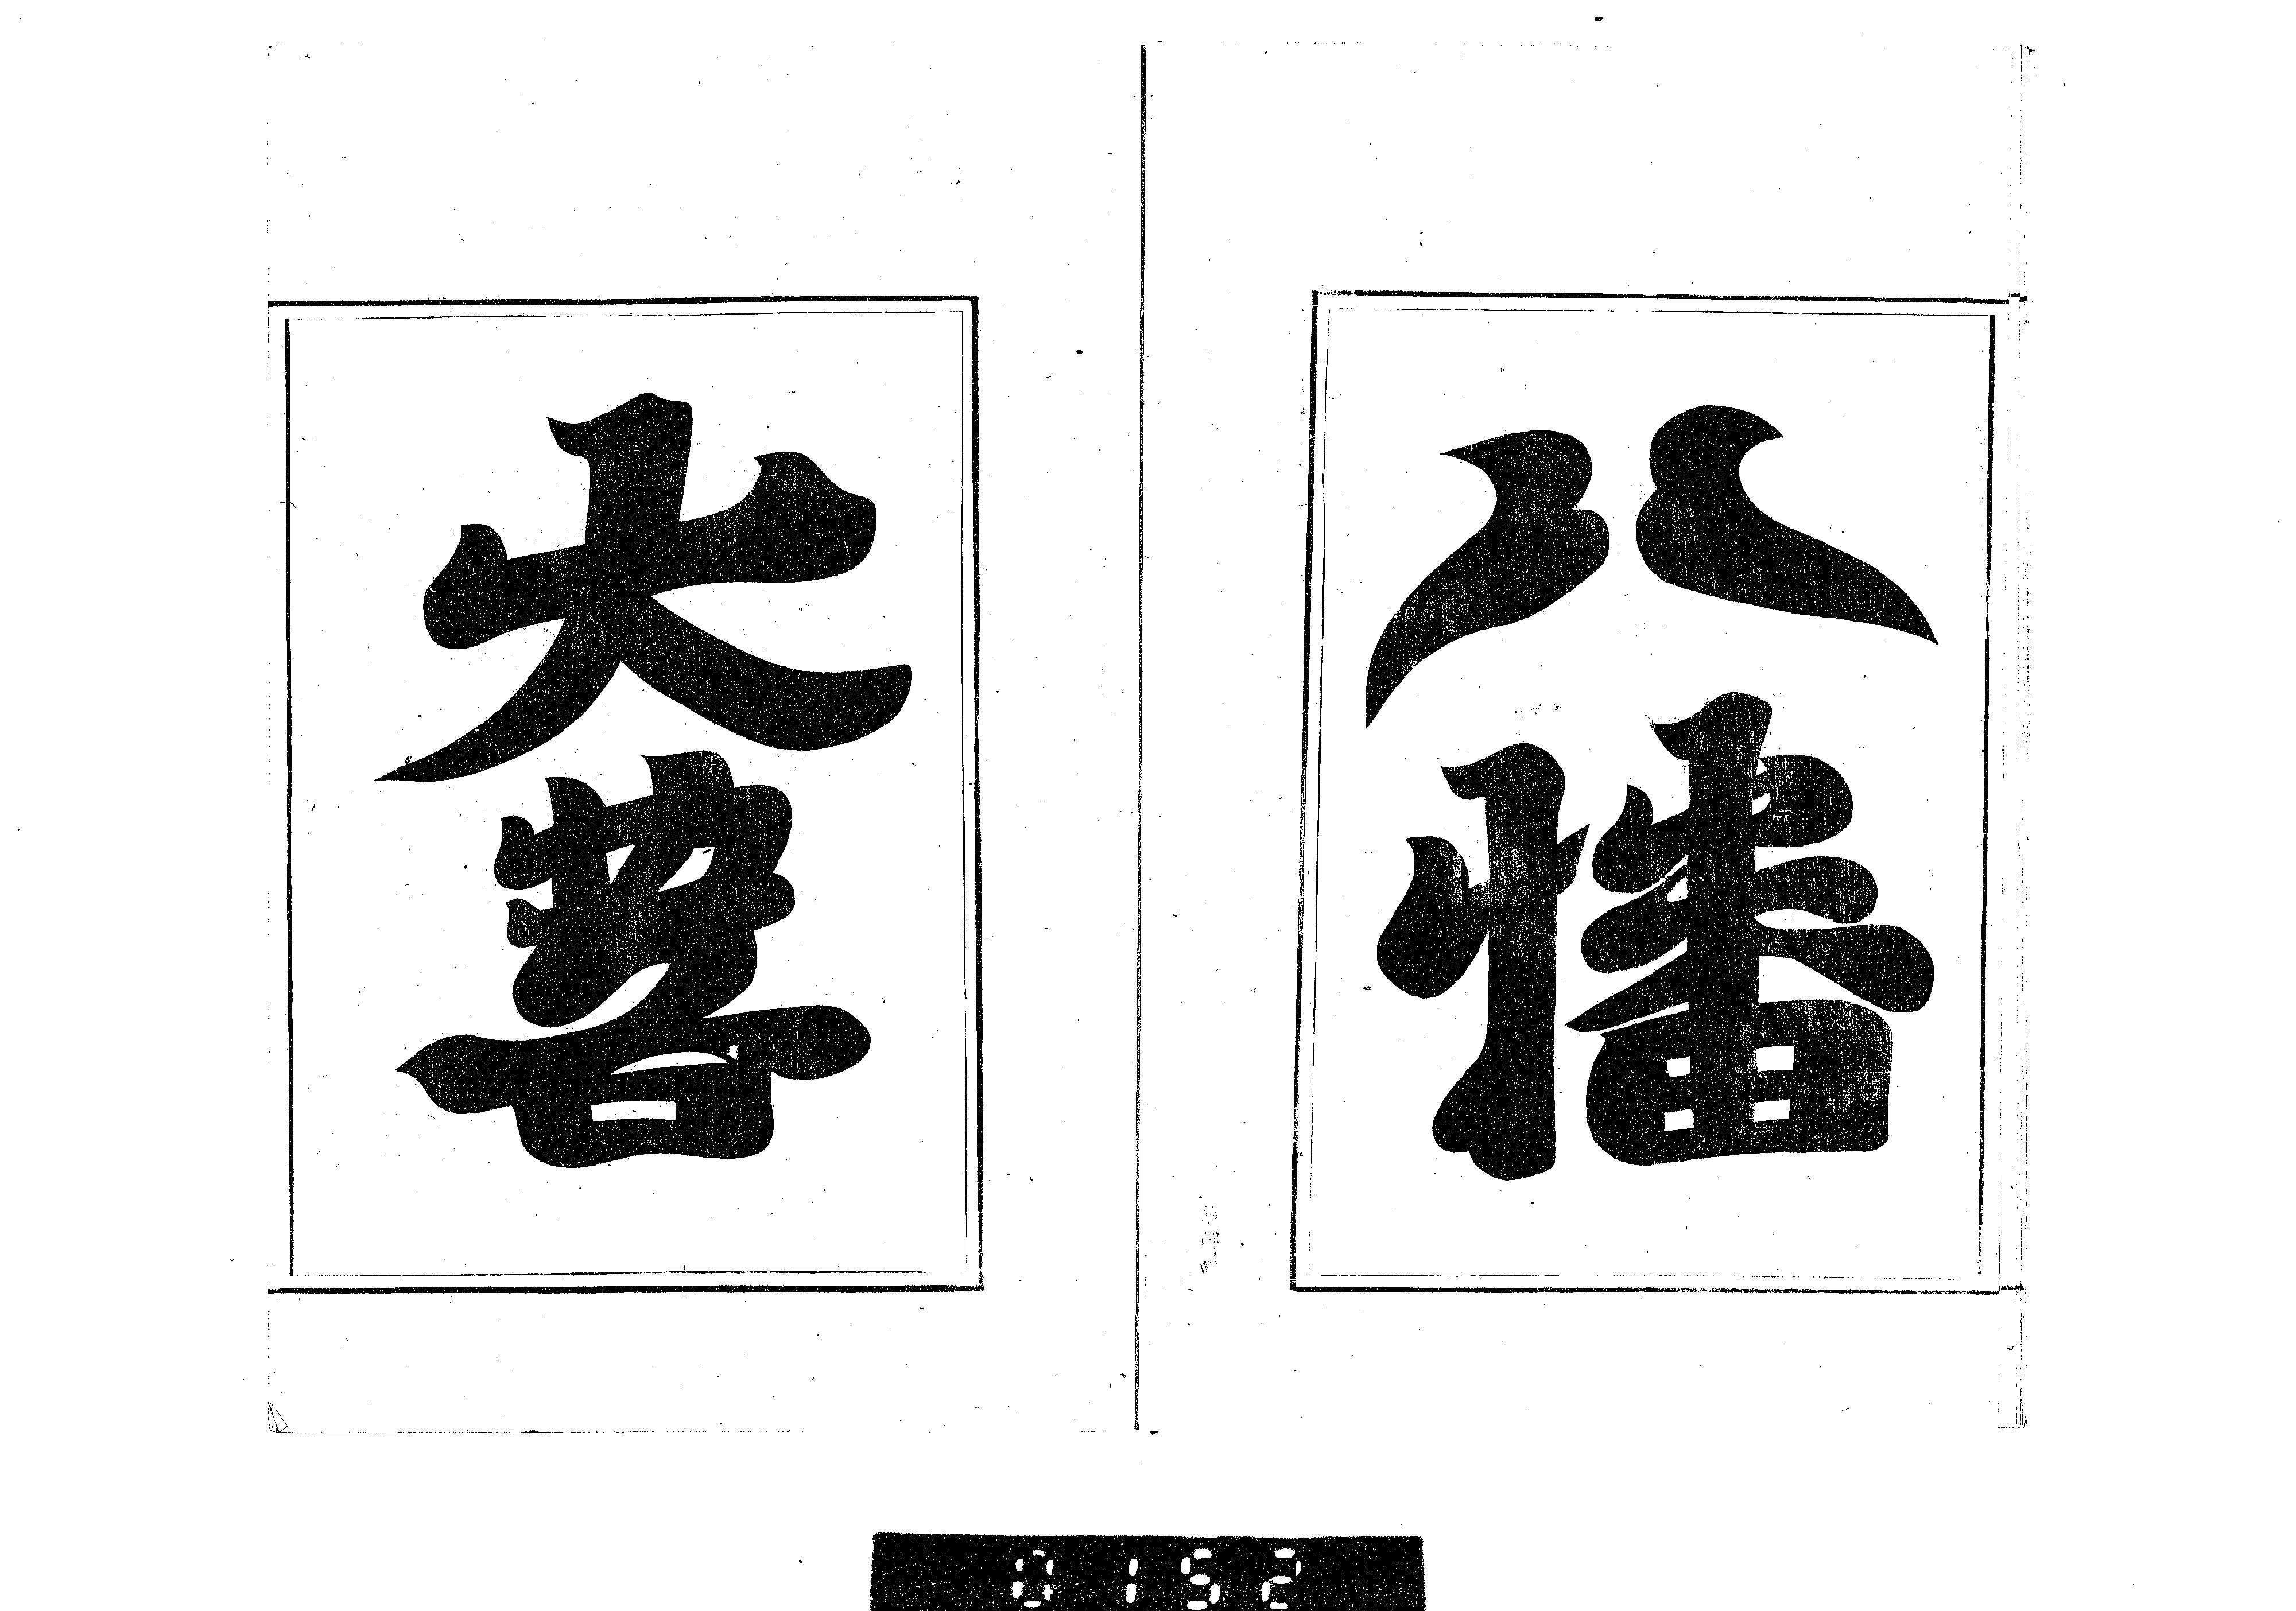 八幡
大菩
0152